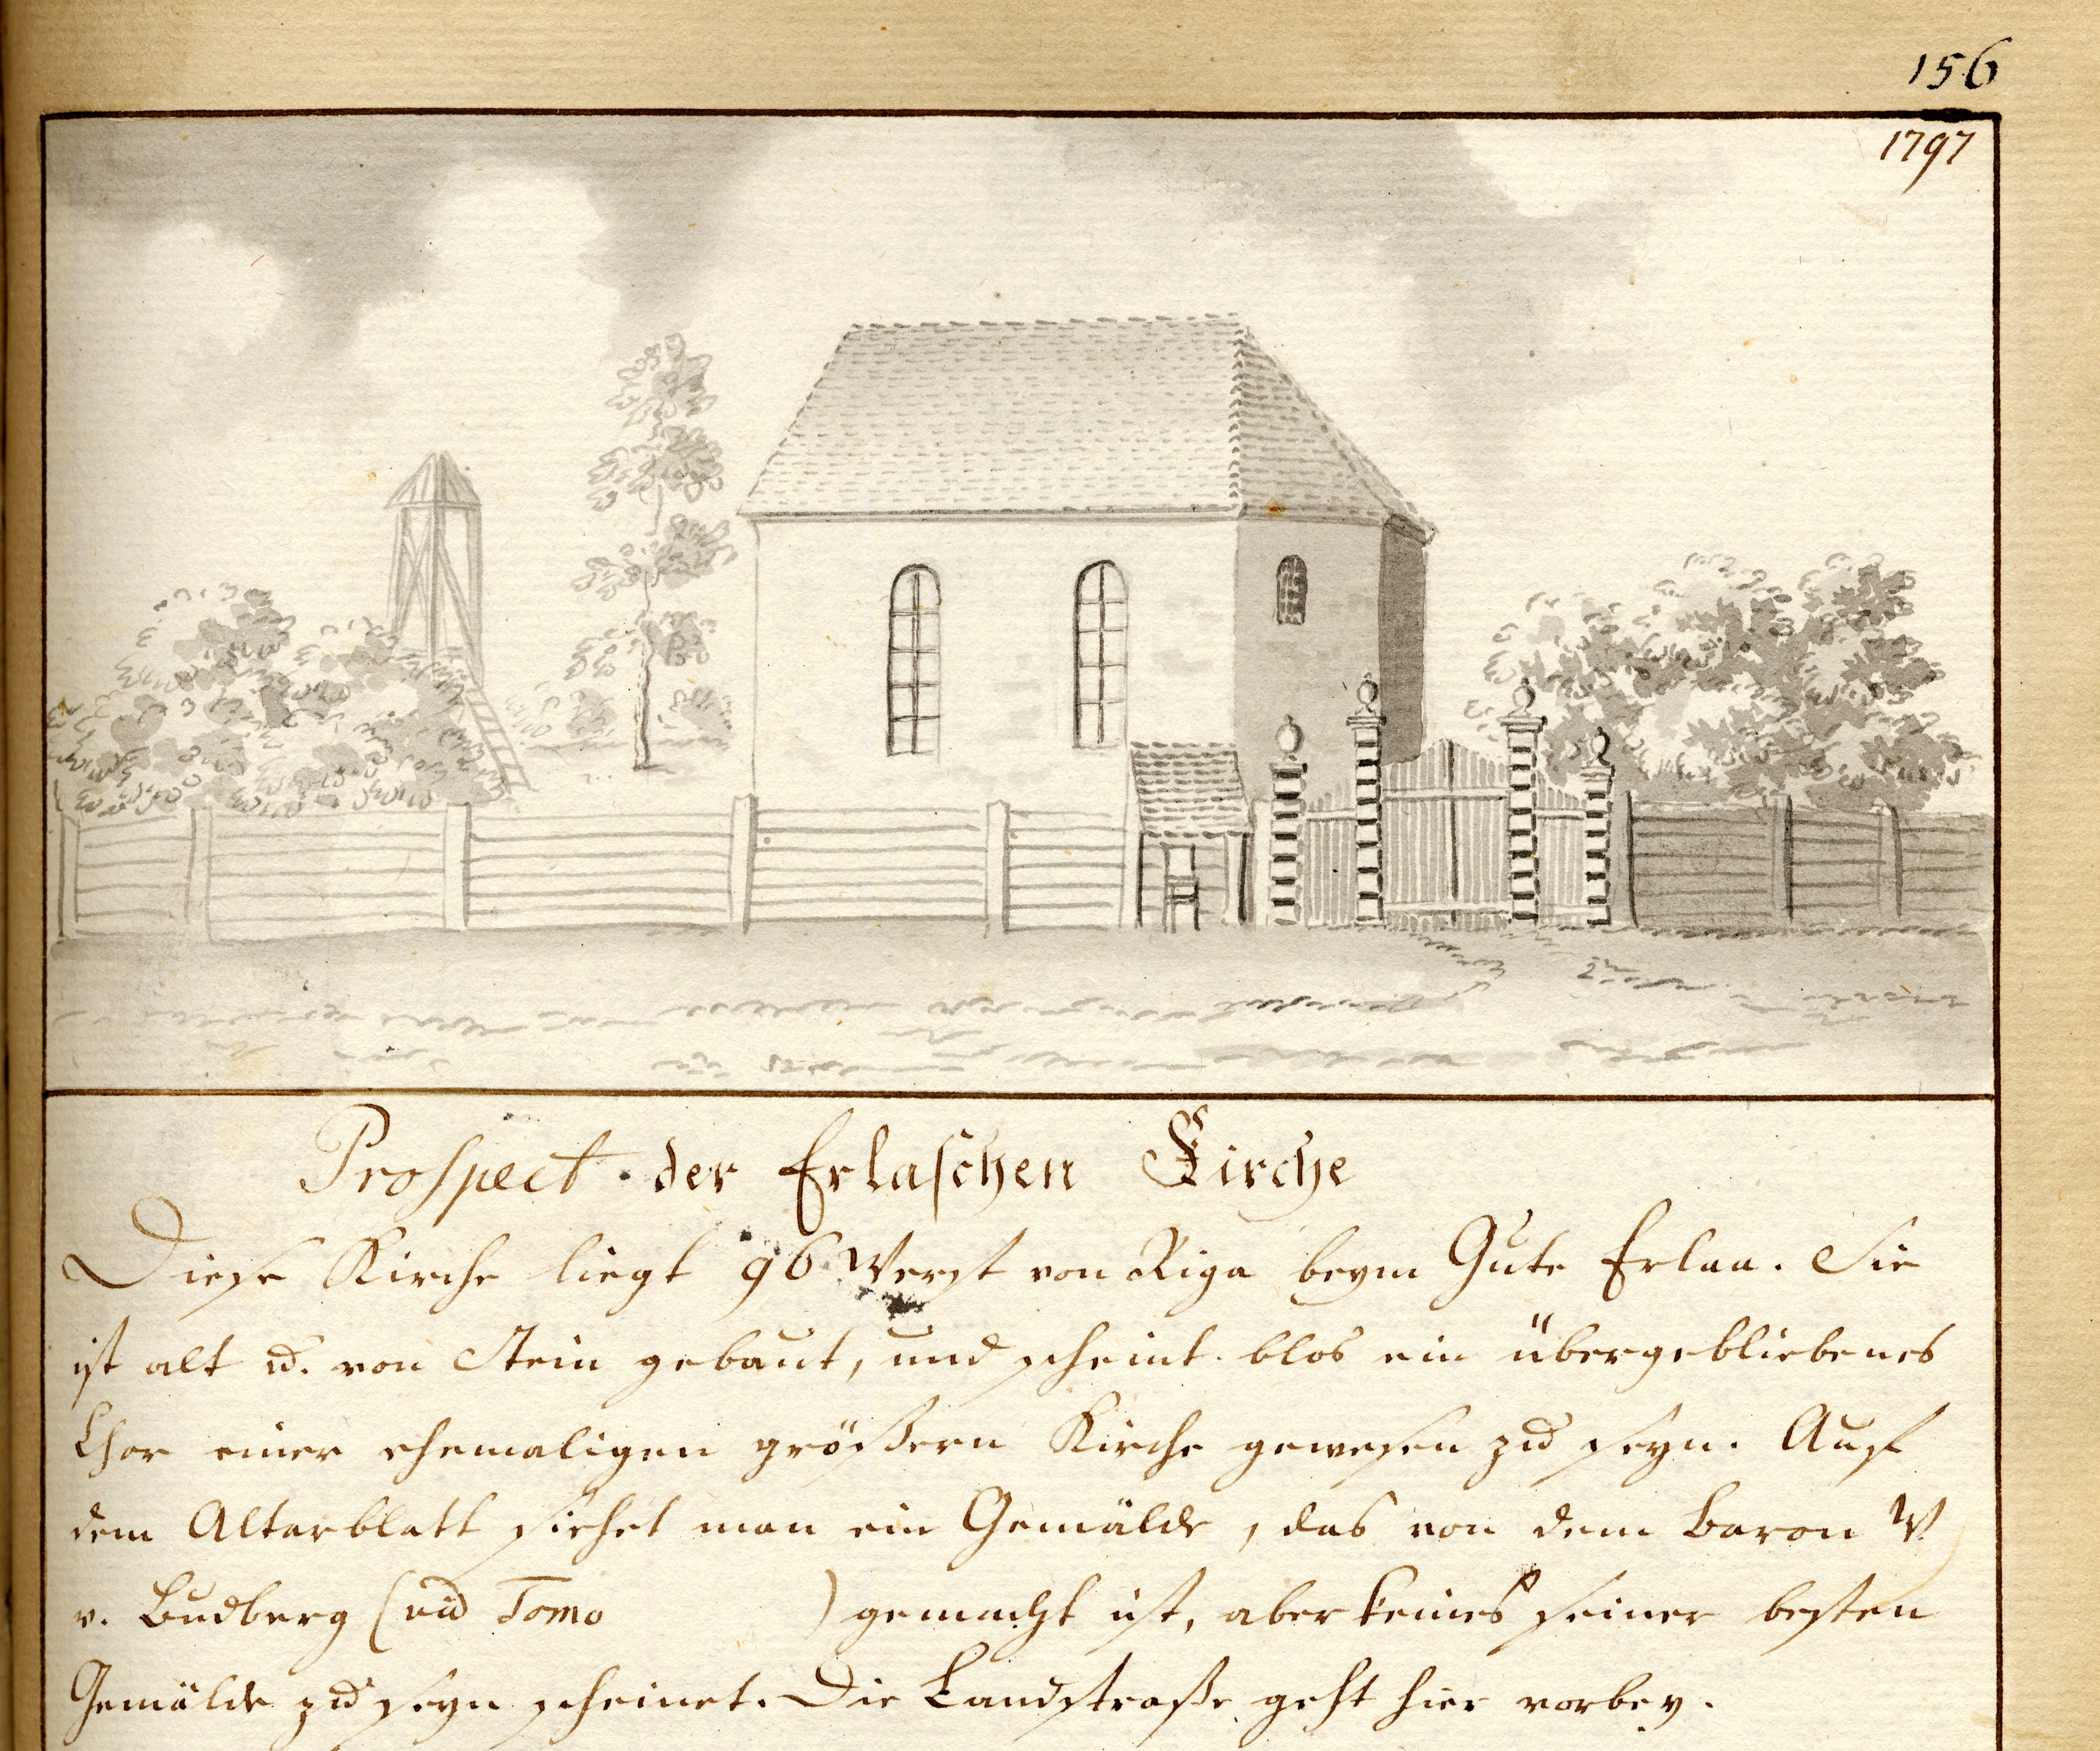 156
1797
Prospect der Erlaschen Kirche
Diese Kirche liegt 96 Werst von Riga beym Gute Erlaa. Sie
ist alt u. von Stein gebaut, und scheint blos ein übergebliebenes
Chor einer ehemaligen größern Kirche gewesen zu seyn. Auf
dem Altarblatt siehet man ein Gemälde, das von dem Baron W.
v. Budberg (vid Tomo ) gemacht ist, aber keines seiner besten
Gemälde zu seyn scheinet. Die Landstraße geht hier vorbey.